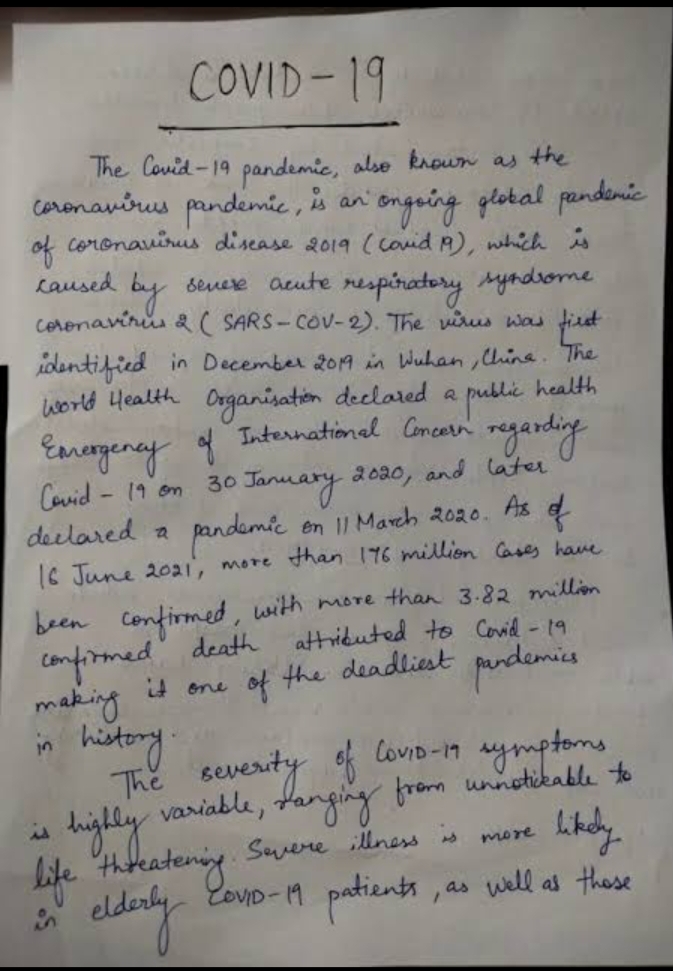 COVID-19
The Covid-19 pandemic, also known as the
coronavirus pandemic, is an ongoing global pandemic
of coronavirus disease 2019 (covid 19), which is
caused by severe acute respiratory syndrome
coronavirus 2 ( SARS-COV-2). The virus was first
identified in December 2019 in Wuhan, China. The
World Health Organisation declared a public health
Emergency of International Concern regarding
Covid - 19 on 30 January 2020, and later
declared a pandemic on 11 March 2020. As of
16 June 2021, more than 176 million Cases have
been confirmed, with more than 3.82 million
confirmed death attributed to Covid - 19
making it one of the deadliest pandemics
in history.
The severity of COVID-19 symptoms
is highly variable, ranging from unnoticeable to
life threatening. Severe illness is more likely
in elderly COVID-19 patients, as well as those